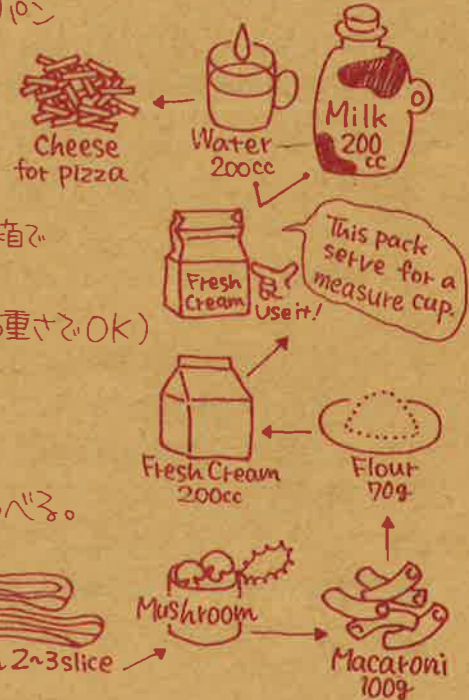 パン
Cheese
for pizza
Water
200cc
Milk
200
cc
箱で
Fresh
Cream
Use it!
This pack
serve for a
measure cup.
重さでOK)
Fresh Cream
200cc
Flour
70g
べる。
2~3slice
Mushroom
Macaroni
100g